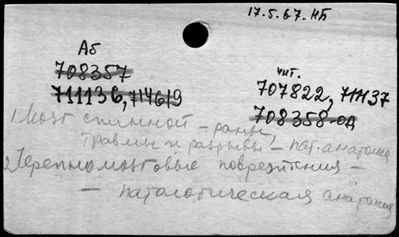 17.5.67. НБ
Аб
708357
711136, 714619
чит.
707822, 711137
708358-од
1. Мозг спинной - раны,
травмы и разрывы - пат. анатомия
2. Черепномозговые повреждения -
- патологическая анатомия